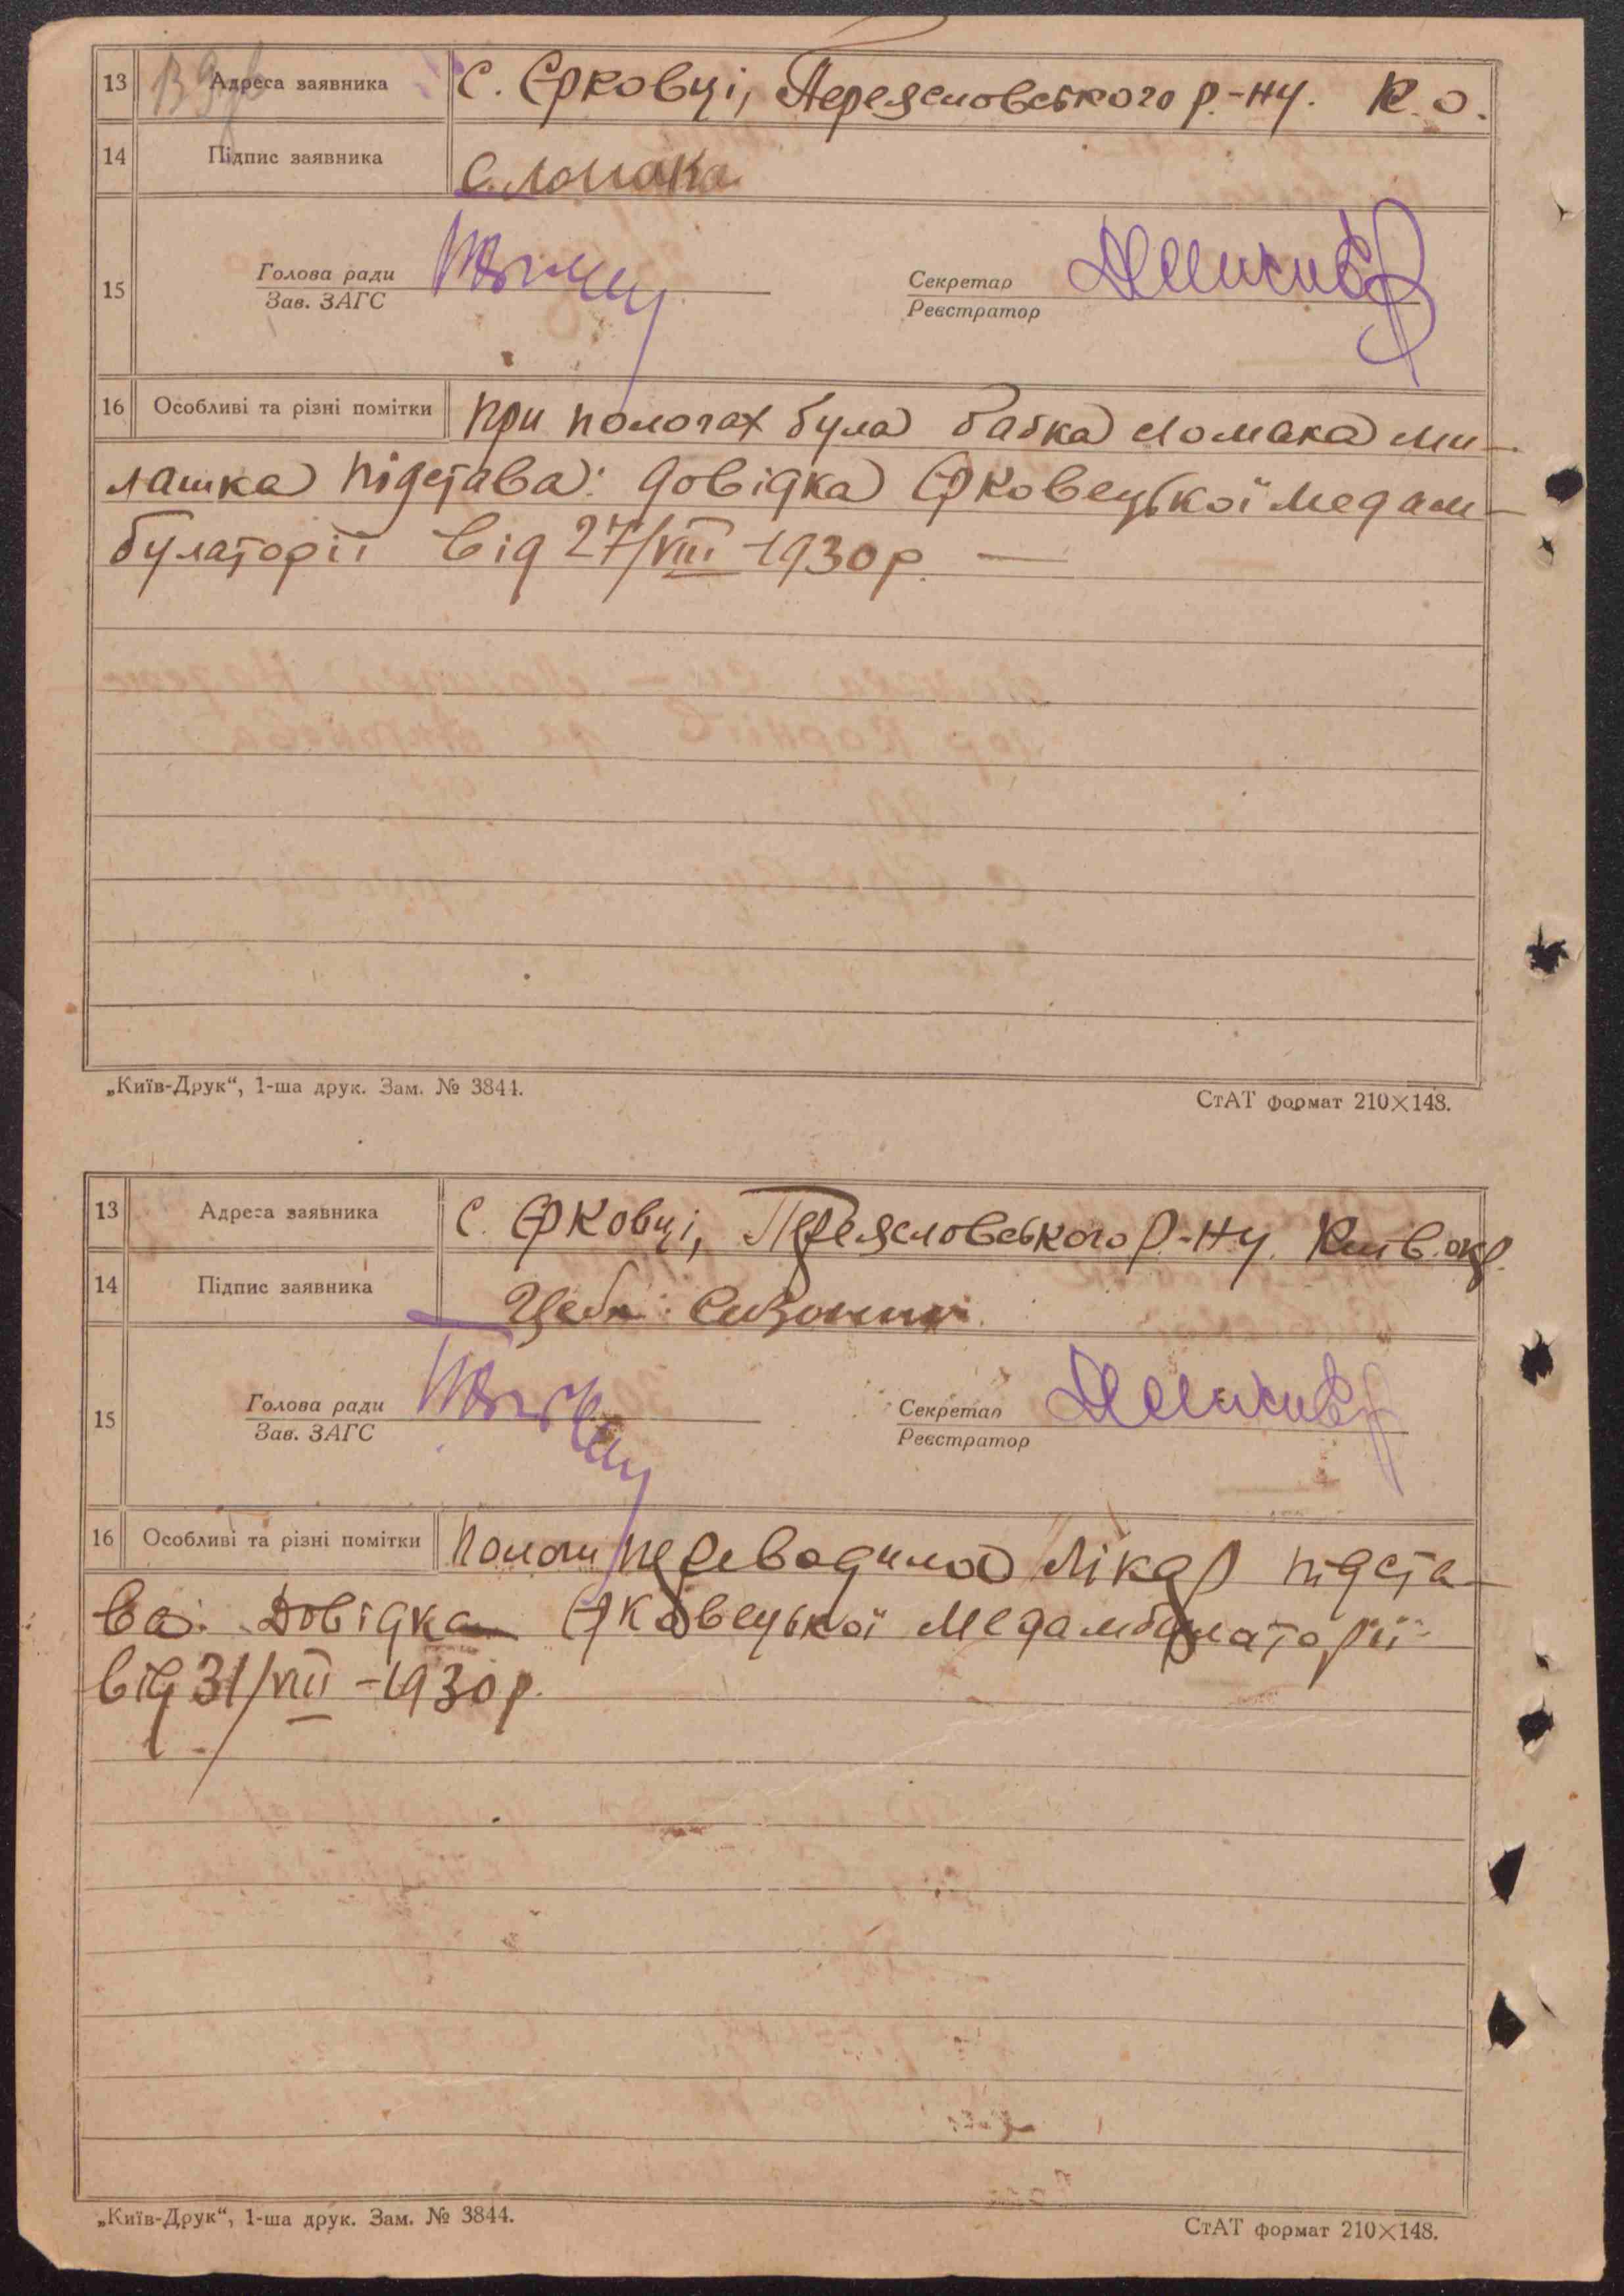 13 Адреса заявника С. Єрковці, Переясловського р.-ну. К.о.
14 Підпис заявника С. Ломака
15 Голова ради
Зав. ЗАГС
Секретар
Реєстратор
16 Особливі та різні помітки при пологах була бабка Ломака Ми-
лашка підстава: довідка Єрковецької медам-
булаторії від 27/VIII-1930р. —
„Київ-Друк“, 1-ша друк. Зам. № 3844.
СтАТ формат 210×148.
13 Адреса заявника С. Єрковці, Переясловського р.-ну. Київ. окр.
14 Підпис заявника Цеба
15 Голова ради
Зав. ЗАГС
Секретар
Реєстратор
16 Особливі та різні помітки Пологи переводила лікар підста-
ва: Довідка Єрковецької Медамбулаторії
від 31/VIII-1930р.
„Київ-Друк“, 1-ша друк. Зам. № 3844.
СтАТ формат 210×148.